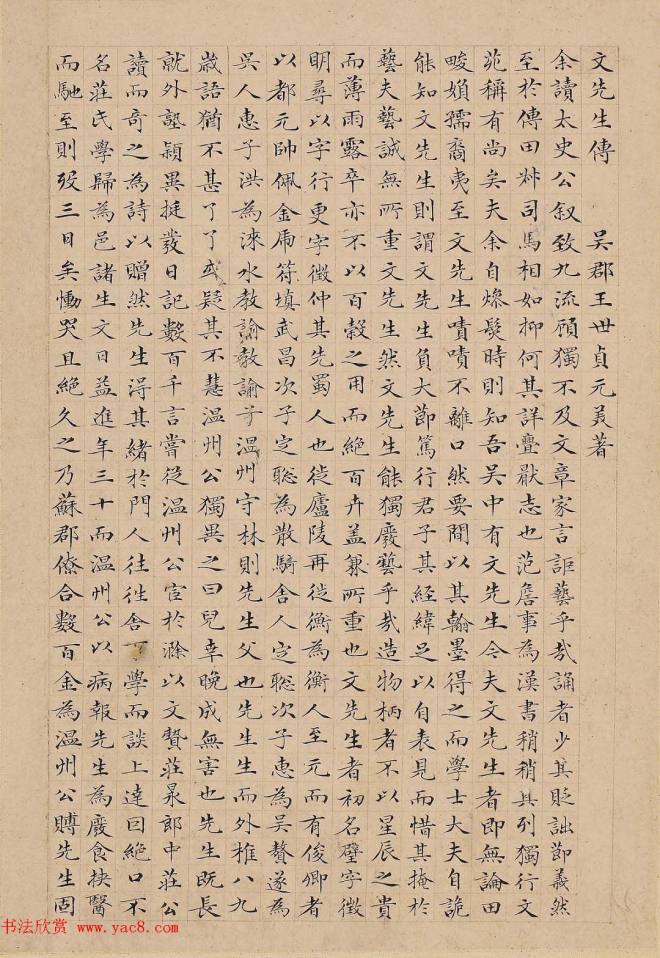 文先生傳　吳郡王世貞元美著
余讀太史公叙致九流顧獨不及文章家言詎藝乎哉誦者少其貶詘節義然
至於傳田叔司馬相如抑何其詳舋猒志也范詹事為漢書稍稍具列獨行文
苑稱有尚矣夫余自燥髮時則知吾吳中有文先生今夫文先生者即無論田
畯媍孺裔夷至文先生嘖嘖不離口然要間以其翰墨得之而學士大夫自詭
能知文先生則謂文先生負大節篤行君子其経緯足以自表見而惜其掩於
藝夫藝誠無所重文先生然文先生能獨廢藝乎哉造物柄者不以星辰之貴
而薄雨露卒亦不以百穀之用而絕百卉盖兼所重也文先生者初名壁字徵
明尋以字行更字徵仲其先蜀人也徙廬陵再徙衡為衡人至元而有俊卿者
以都元帥佩金虎符填武昌次子定聡為散騎舍人定聡次子惠為吳贅遂為
吳人惠子洪為淶水教諭教諭子溫州守林則先生父也先生生而外椎八九
歲語猶不甚了了或疑其不慧溫州公獨異之曰兒幸晚成無害也先生既長
就外塾穎異挺發日記數百千言嘗從溫州公宦於滁以文贄莊㫤郎中莊公
讀而奇之為詩以贈然先生得其緒於門人往往舍下學而談上達因絕口不
名莊氏學歸為邑諸生文日益進年三十而溫州公以病報先生為廢食挾醫
而馳至則歿三日矣慟哭且絕久之乃蘇郡僚合數百金為溫州公賻先生固
书法欣赏 www.yac8.com